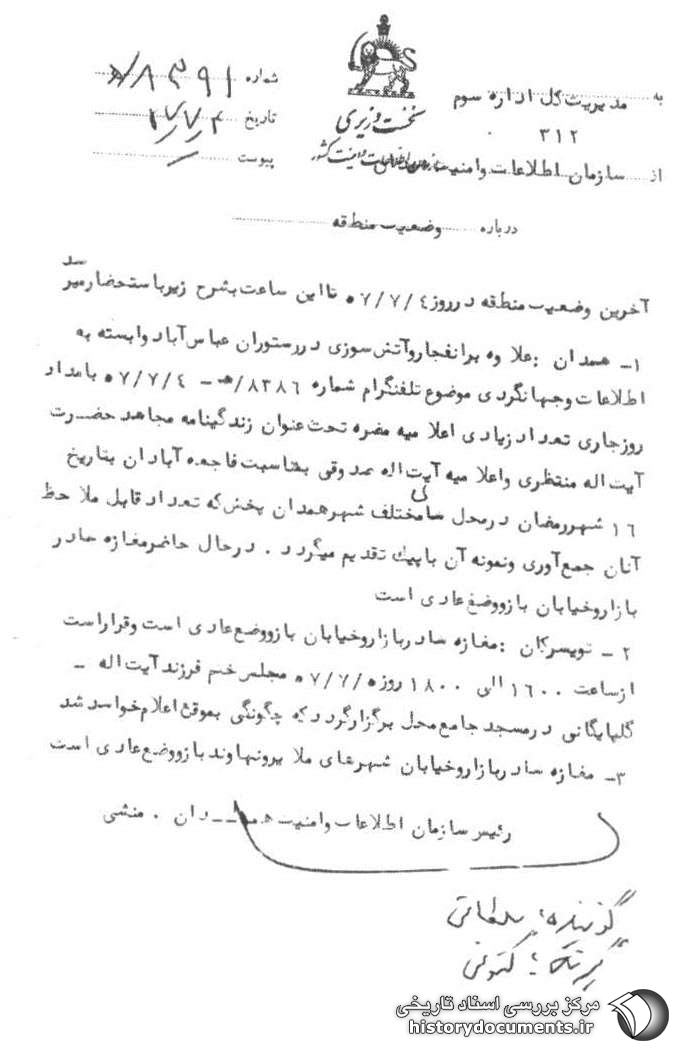 به مدیریت کل اداره سوم
۳۱۲
از سازمان اطلاعات وامنیت
نخست وزیری
سازمان اطلاعات و امنیت کشور
شماره ۸۳۹۱/ﻫ
تاریخ
پیوست
درباره وضعیت منطقه
آخرین وضعیت منطقه درروز ۵۷/۷/۴ تااین ساعت بشرح زیرباستحضارمیرسد
۱- همدان : علاوه برانفجاروآتش سوزی دررستوران عباس آباد وابسته به
اطلاعات وجهانگردی موضوع تلفنگرام شماره ۸۳۸۶/ﻫ - ۵۷/۷/۴ بامداد
روزجاری تعداد زیادی اعلامیه مضره تحت عنوان زندگینامه مجاهد حضرت
آیت اله منتظری واعلامیه آیت اله صدوقی بمناسبت فاجعه آبادان بتاریخ
۱۶ شهررمضان درمحل مختلف شهرهمدان پخش که تعداد قابل ملاحظ
آنان جمع آوری ونمونه آن باپیک تقدیم میگردد . درحال حاضرمغازه هادر
بازاروخیابان بازووضع عادی است
۲- تویسرکان : مغازه هادربازاروخیابان بازووضع عادی است وقراراست
ازساعت ۱۶۰۰ الی ۱۸۰۰ روز ۵۷/۷/۵ مجلس ختم فرزند آیت اله -
گلپایگانی درمسجد جامع محل برگزارگردد که چگونگی بموقع اعلام خواهد شد
۳- مغازه هادربازاروخیابان شهرهای ملایرونهاوند بازووضع عادی است
رئیس سازمان اطلاعات وامنیت همدان . منشی
گوینده : سلطانی
گیرنده :
مرکز بررسی اسناد تاریخی
historydocuments.ir